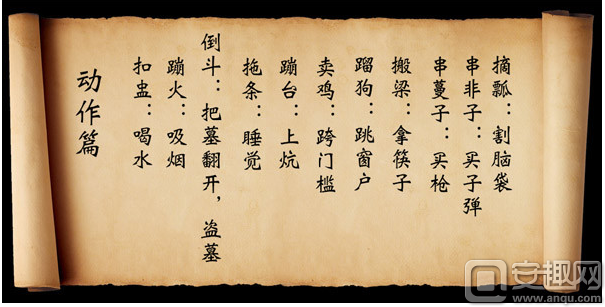 动作篇
扣蛊：喝水
蹦火：吸烟
倒斗：把墓翻开，盗墓
拖条：睡觉
蹦台：上炕
卖鸡：跨门槛
蹓狗：跳窗户
搬梁：拿筷子
串蔓子：买枪
串非子：买子弹
摘瓢：割脑袋
安趣网
www.anqu.com